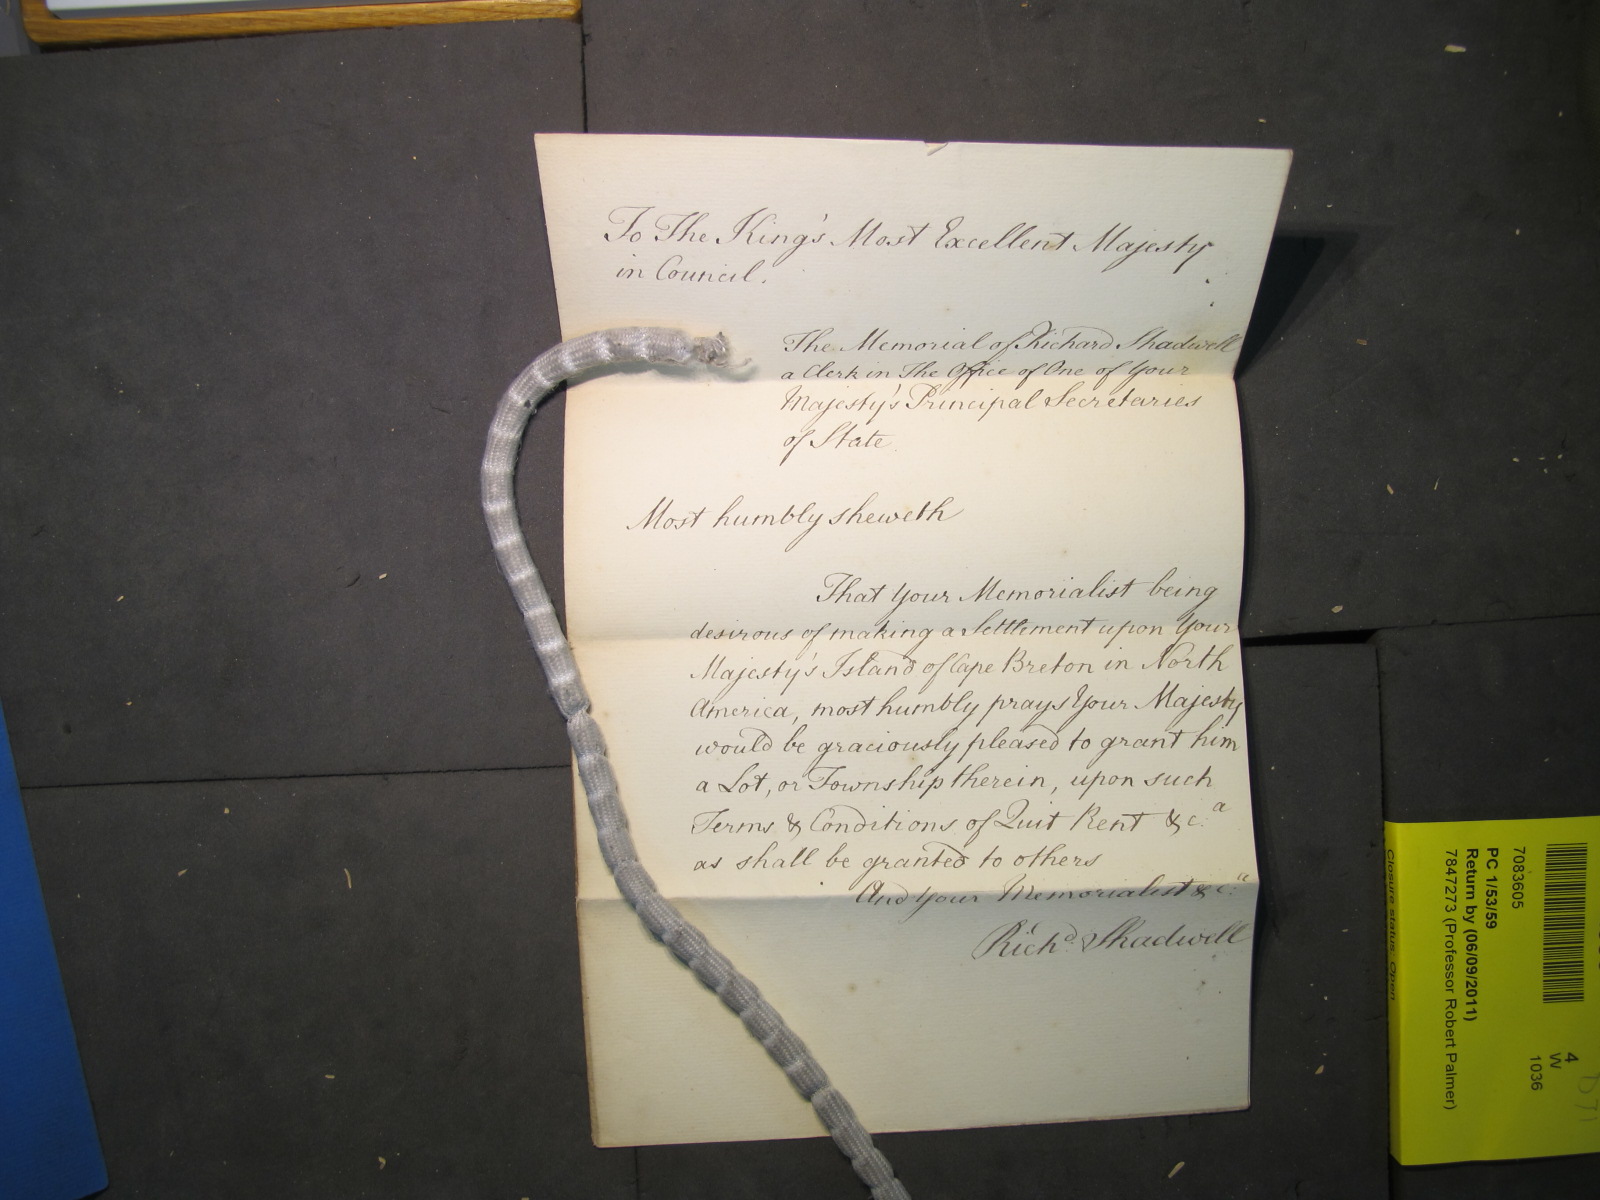 To The King's Most Excellent Majesty
in Council.
The Memorial of Richard Shadwell
a Clerk in The Office of One of Your
Majesty's Principal Secretaries
of State
Most humbly sheweth
That Your Memorialist being
desirous of making a Settlement upon Your
Majesty's Island of Cape Breton in North
America, most humbly prays Your Majesty
would be graciously pleased to grant him
a Lot, or Township therein, upon such
Terms & Conditions of Quit Rent &c.a
as shall be granted to others
And Your Memorialist &c.a
Richd. Shadwell
4
W
1036
7083605
PC 1/53/59
Return by (06/09/2011)
7847273 (Professor Robert Palmer)
Closure status: Open